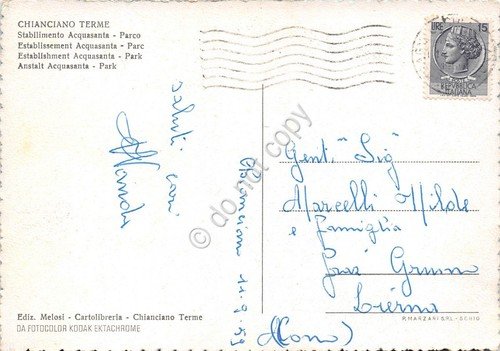 CHIANCIANO TERME
Stabilimento Acquasanta - Parco
Establissement Acquasanta - Parc
Establishment Acquasanta - Park
Anstalt Acquasanta - Park
LIRE 15
REPVBBLICA
ITALIANA
saluti cari
Wanda
Chianciano 11-9-59
Gent. Sig
Marcelli Milde
e Famiglia
Lierna
(Como)
do not copy
Ediz. Melosi - Cartolibreria - Chianciano Terme
DA FOTOCOLOR KODAK EKTACHROME
P. MARZARI S.R.L. - SCHIO